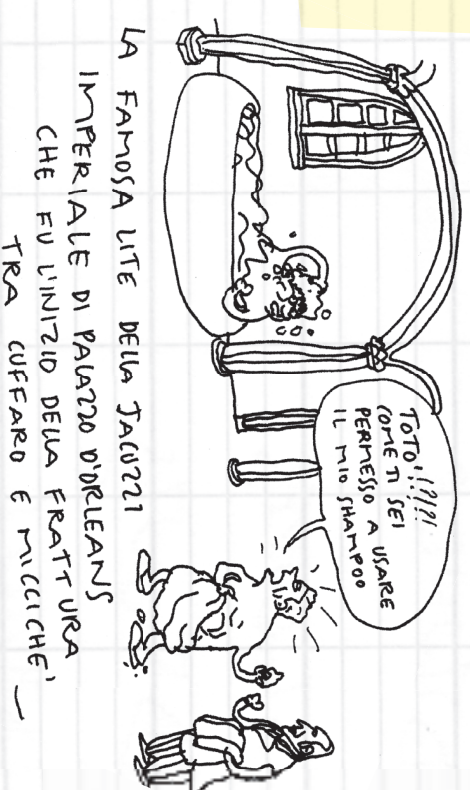 TOTO'!!?!?!
COME TI SEI
PERMESSO A USARE
IL MIO SHAMPOO
LA FAMOSA LITE DELLA JACUZZI
IMPERIALE DI PALAZZO D'ORLEANS
CHE FU L'INIZIO DELLA FRATTURA
TRA CUFFARO E MICCICHE'